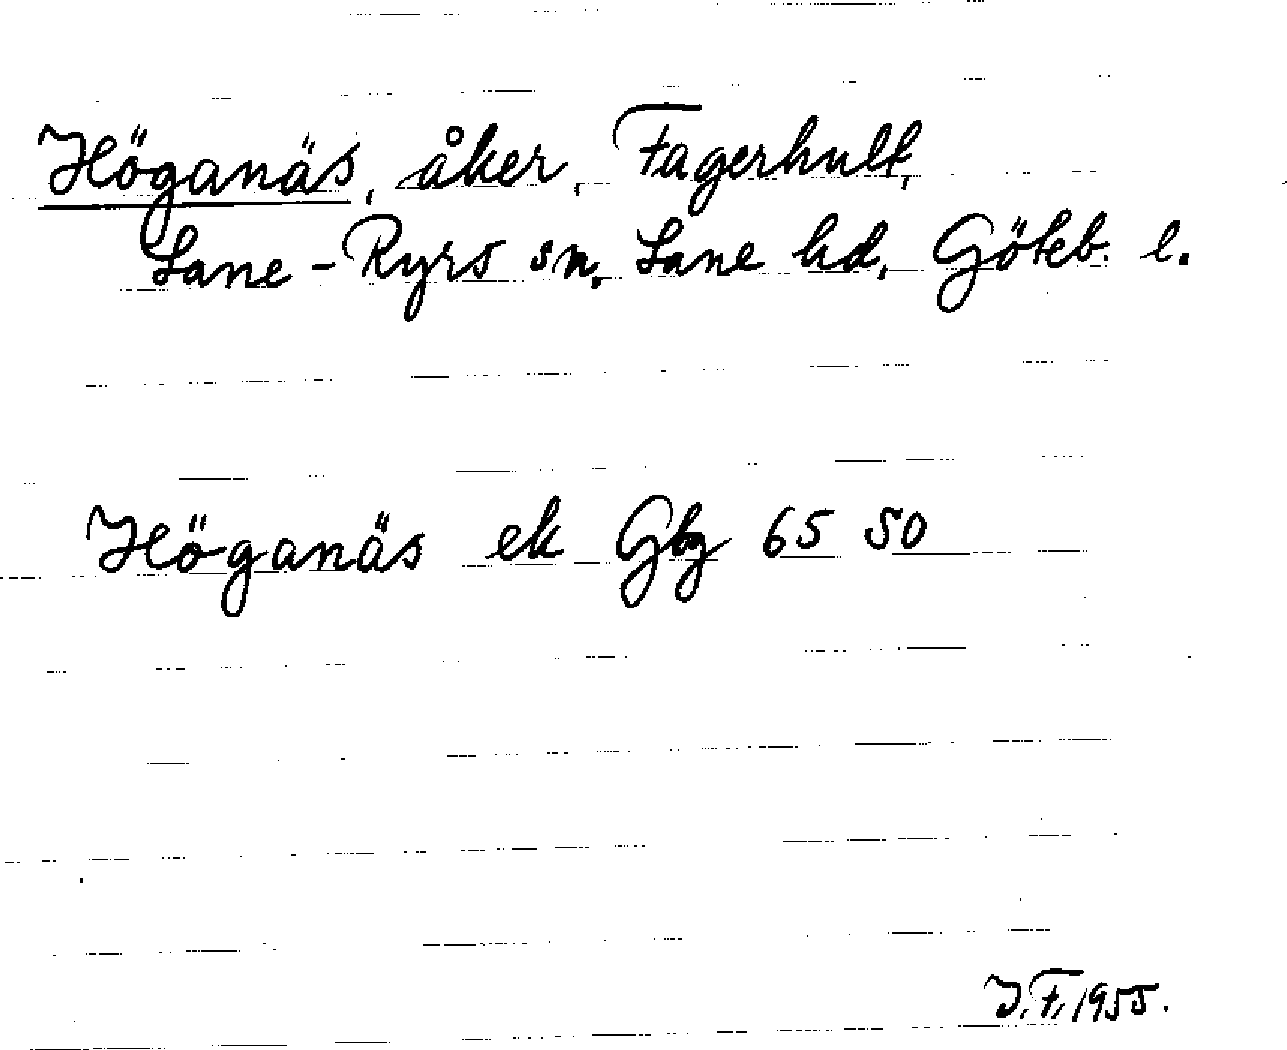 Höganäs, åker, Fagerhult,
Lane-Ryrs sn. Lane hd, Göteb. l.
Höganäs ek Gbg 65 50
J.F. 1955.